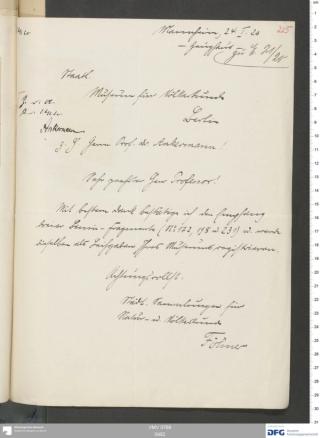 Mannheim, 24. I. 20
225
– Zeughaus
zu E 71/20
Staatl.
Museum für Völkerkunde
Berlin
z. H. Herrn Prof. Dr. Ankermann!
Ankermann
Sehr geehrter Herr Professor!
Mit bestem Dank bestätige ich den Empfang
dreier Benin-Fragmente (Nr. 122, 178 u. 231) u. werde
dieselben als Leihgaben Ihres Museums registrieren.
Achtungsvollst.
Städt. Sammlungen für
Natur- u. Völkerkunde
Föhner
VMV 0769
DFG